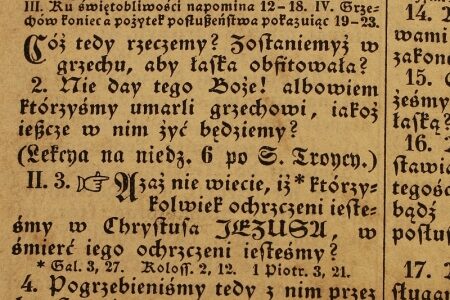 III. Ku świętobliwości napomina 12–18. IV. Grze-
chów koniec a pożytek posłuszeństwa pokazując 19–23.
Cóż tedy rzeczemy? Zostaniemyż w
grzechu, aby łaska obfitowała?
2. Nie day tego Boże! albowiem
którzyśmy umarli grzechowi, iakoż
ieszcze w nim żyć będziemy?
(Lekcya na niedz. 6 po S. Troycy.)
II. 3. ☞ Azaż nie wiecie, iż* którzy-
kolwiek ochrzczeni ieste-
śmy w Chrystusa JEZUSA, w
śmierć iego ochrzczeni iesteśmy?
* Gal. 3, 27. Koloss. 2, 12. 1 Piotr. 3, 21.
4. Pogrzebieniśmy tedy z nim przez
14.
wami
zakone
15.
żeśmy
łaską?
16.
stawia
tegośc
bądź
posłus
17.
sługam